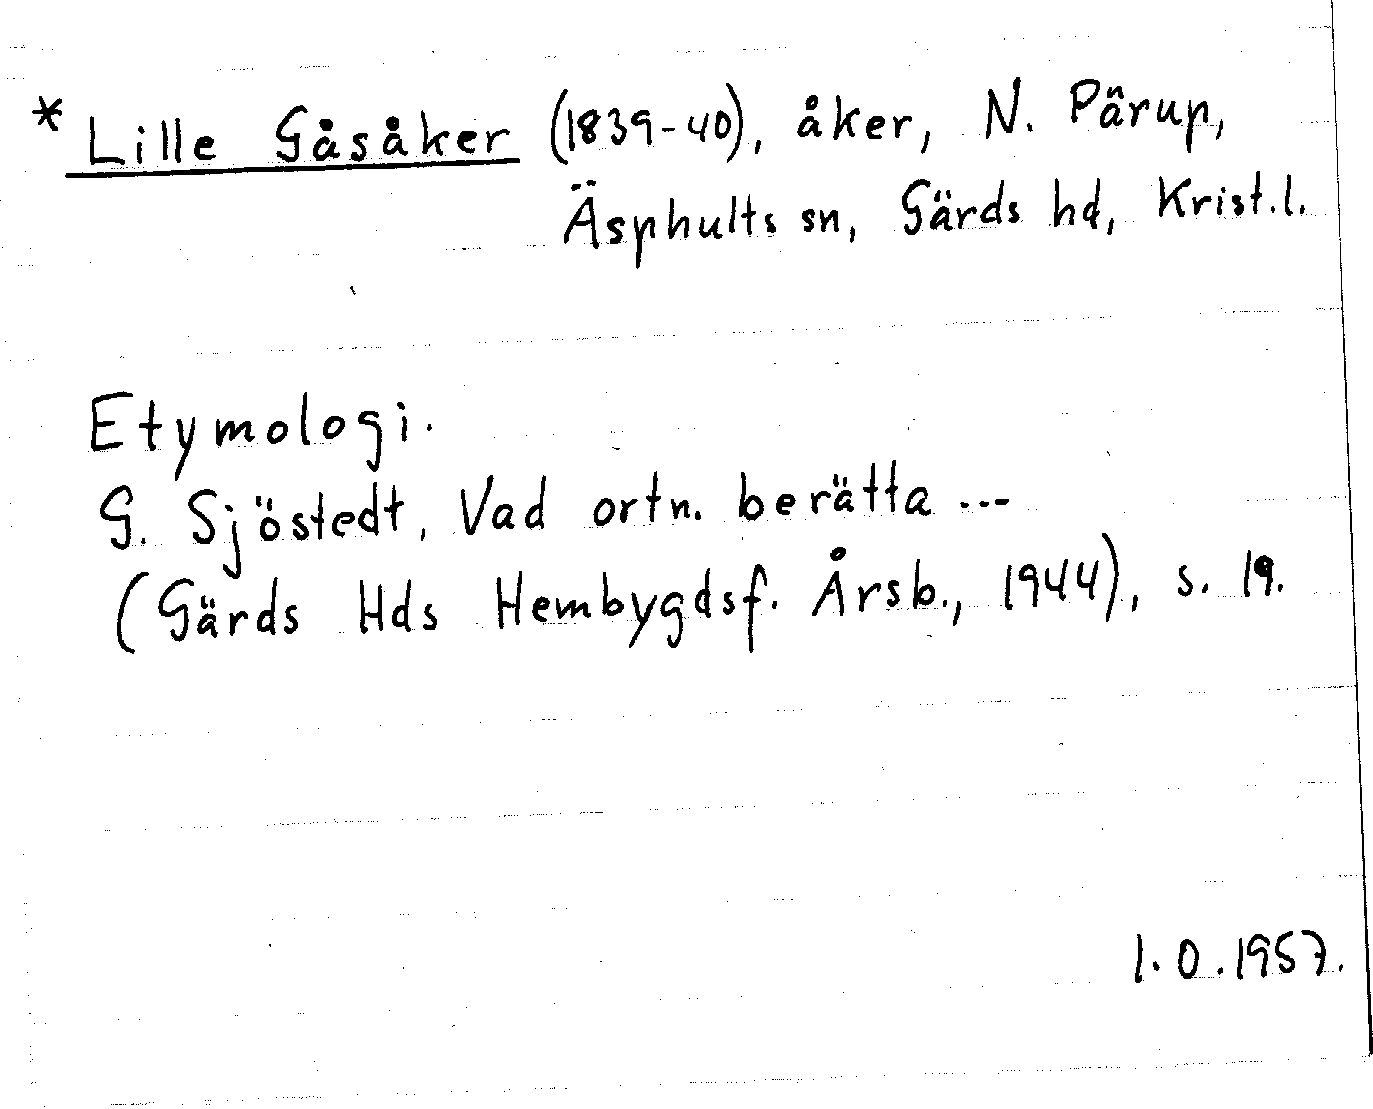 * Lille Gåsåker (1839-40), åker, N. Pärup,
Äsphults sn, Gärds hd, Krist.l.
Etymologi.
G. Sjöstedt, Vad ortn. berätta ...
(Gärds Hds Hembygdsf. Årsb., 1944), s. 19.
I.O.1957.